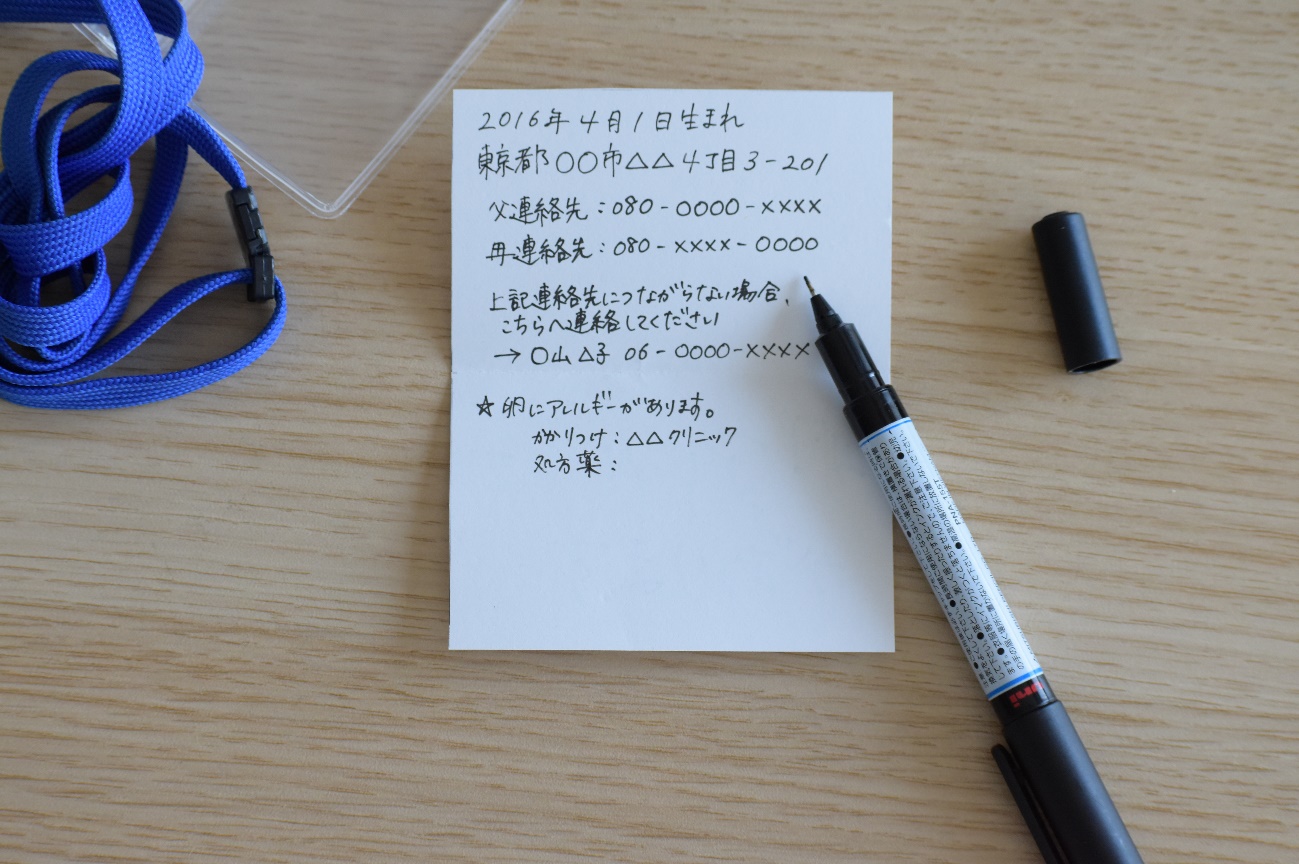 2016年4月1日生まれ
東京都〇〇市△△4丁目3-201
父連絡先：080-〇〇〇〇-××××
母連絡先：080-××××-〇〇〇〇
上記連絡先につながらない場合、
こちらへ連絡してください
→ 〇山△子 06-〇〇〇〇-××××
☆卵にアレルギーがあります。
かかりつけ：△△クリニック
処方薬：
PNA-155T